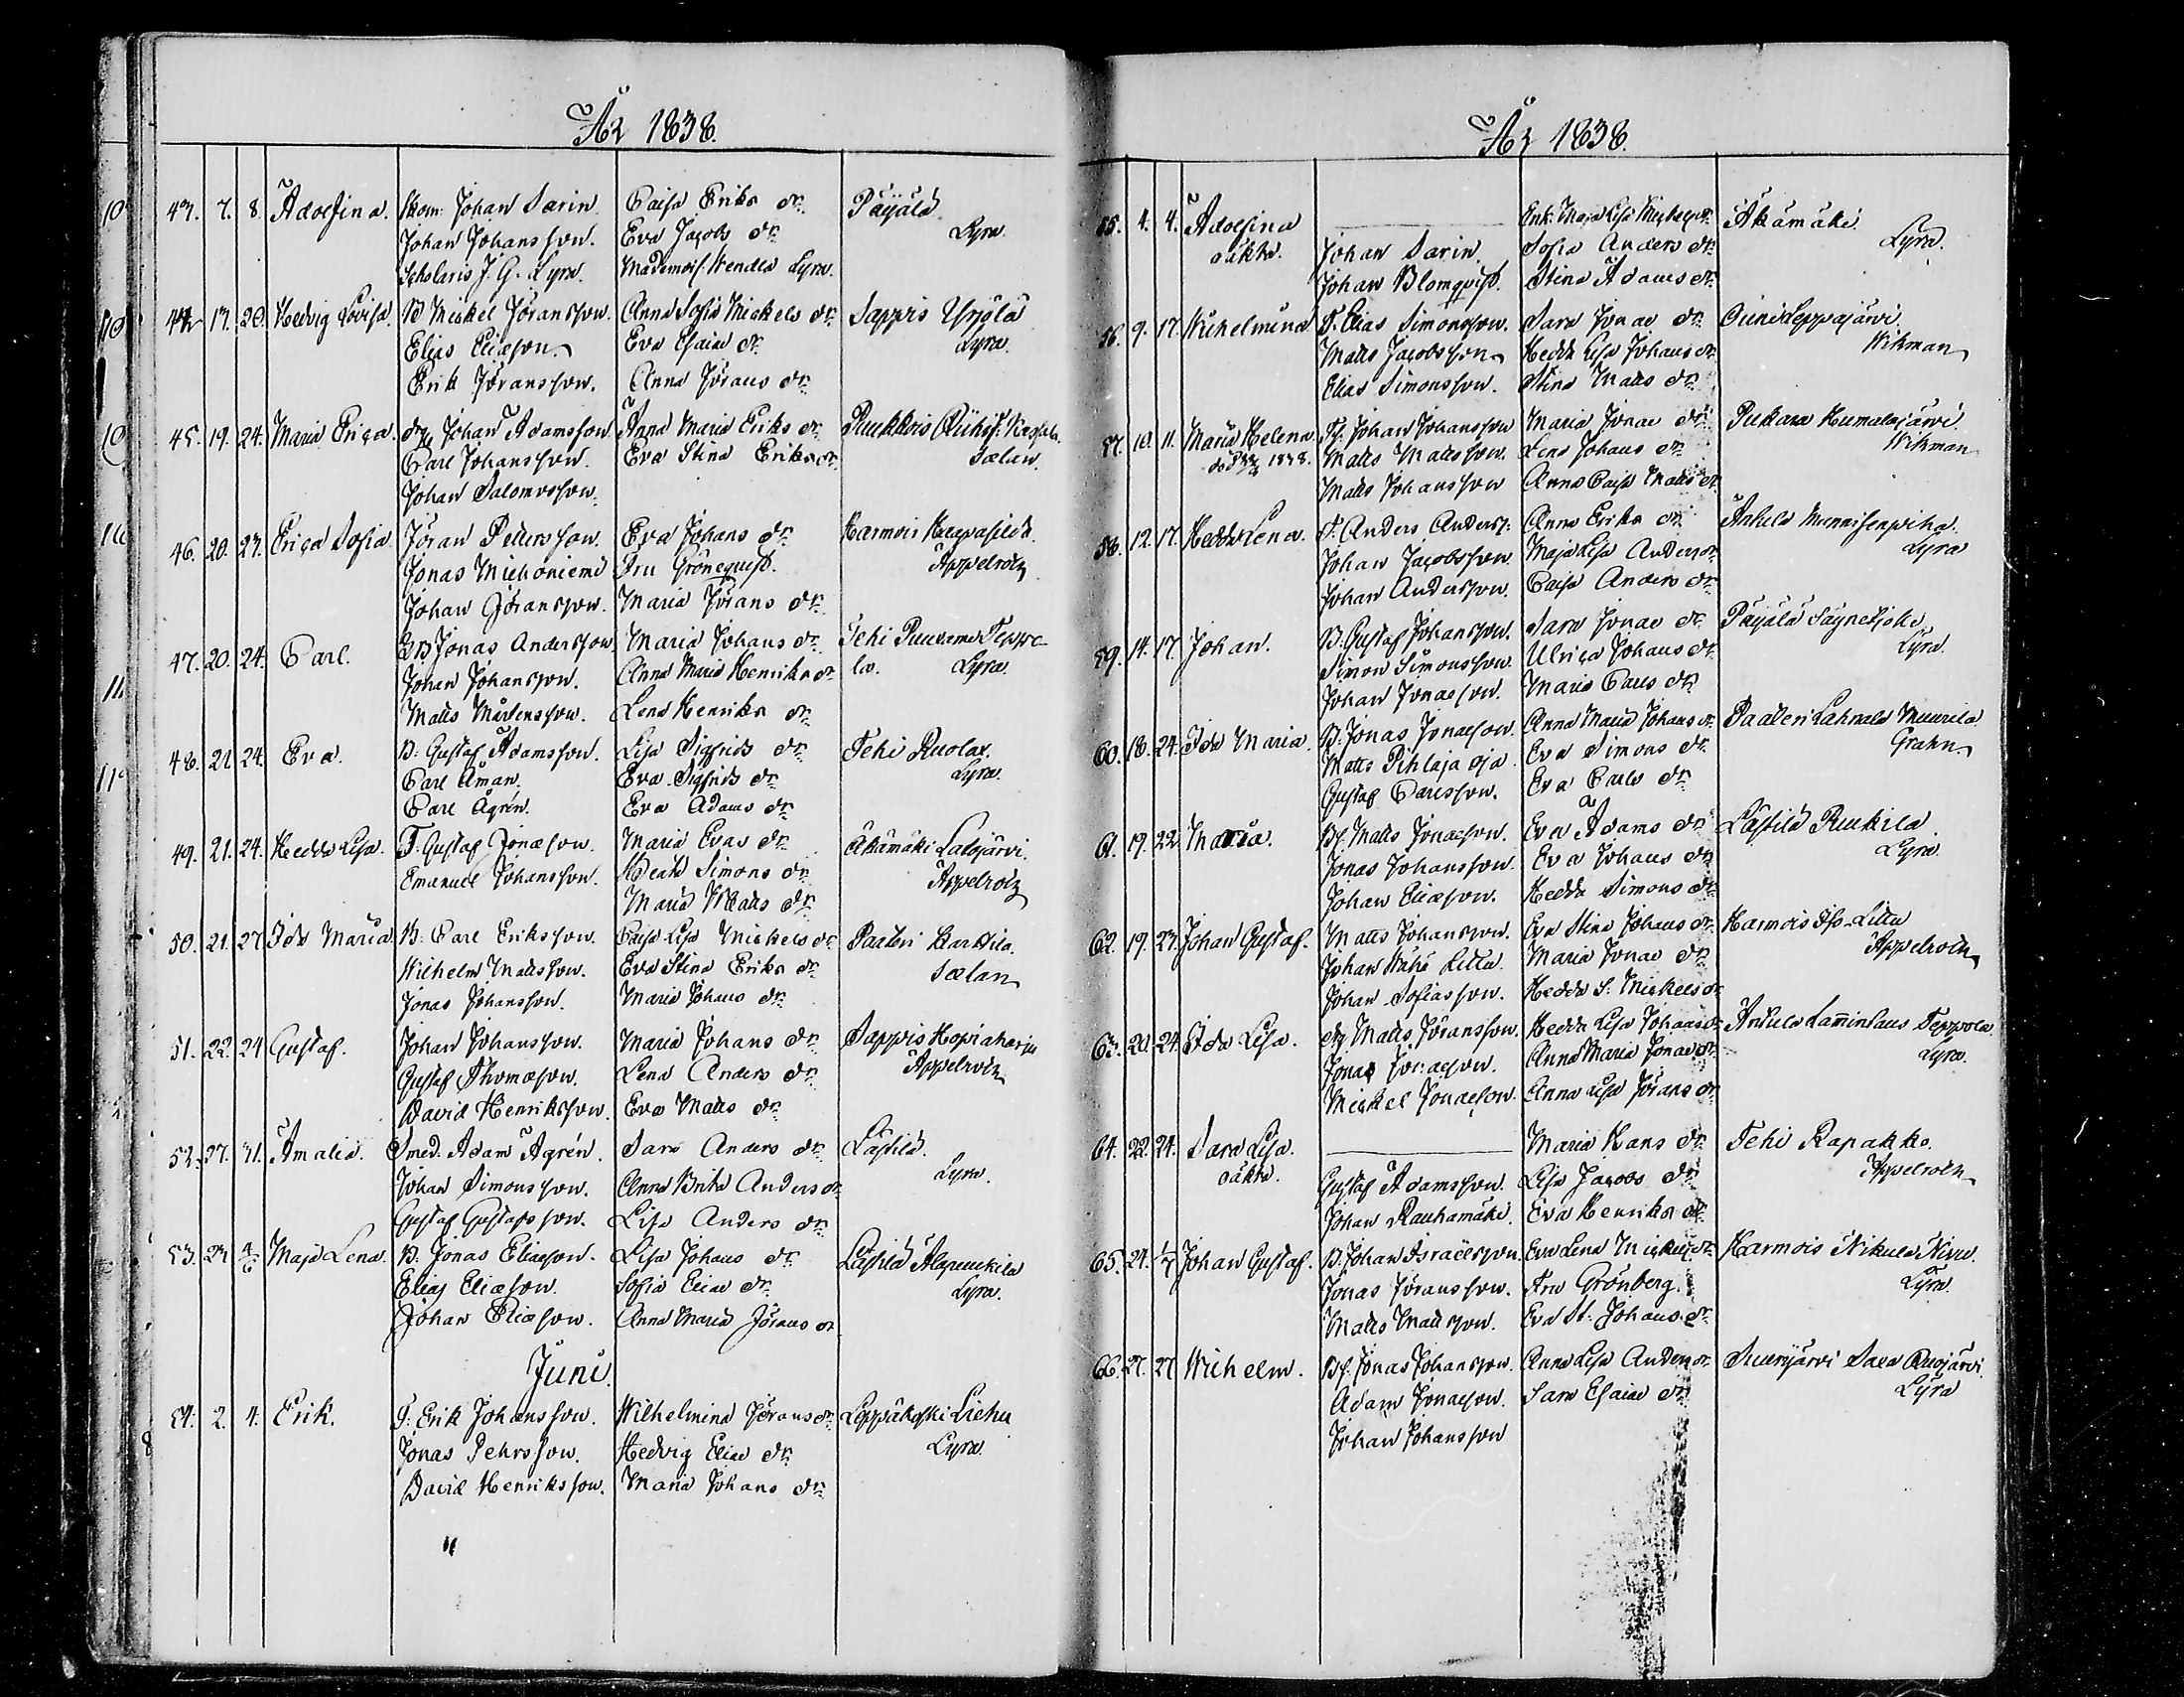 År 1838.
43. 7. 8. Adolfina. Skom: Johan Sarin. Caisa Eriks dr. Päjälä.
Johan Johansson. Eva Jacobs dr. Lyra.
Scholaris J. G. Lyra. Mademois. Wendla Lyra.
44 17. 20. Hedvig Lovisa. B Mickel Jöransson. Anna Sofia Mickels dr. Sappis Yrjölä
Elias Eliasson. Eva Esaiæ dr. Lyra.
Erik Jöransson. Anna Jörans dr.
45. 19. 24. Maria Erica. Johan Adamsson. Anna Maria Eriks dr. Puukkois
Carl Johansson. Eva Stina Eriks dr. Sælan.
Johan Salomosson.
46. 20. 27. Erica Sofia Jöran Pettersson. Eva Johans dr. Harmois
Jonas Michoniemi Fru Grönequist. Appelroth
Johan Göransson. Maria Jörans dr.
47. 20. 24. Carl. Jonas Andersson Maria Johans dr. Jehi Puurama Teppo-
Johan Johansson. Anna Maria Henriks dr. la. Lyra.
Matts Mårtensson. Lena Henriks dr.
48. 21 24. Eva. B. Gustaf Adamsson. Lisa Sigfrids dr. Jehi Ruolax.
Carl Åman. Eva Sigfrids dr. Lyra.
Carl Ågrén. Eva Adams dr.
49. 21. 24. Hedda Lisa. T. Gustaf Jonæson. Maria Evas dr. Äkämäki Lalsjärvi.
Emanuel Johansson. Beata Simons dr. Appelroth
Maria Matts dr.
50. 21. 27 Ida Maria B: Carl Eriksson. Caisa Lisa Mickels dr. Paateri Karkila.
Wilhelm Mattsson. Eva Stina Eriks dr. Sælan
Jonas Johansson. Maria Johans dr.
51. 22. 24 Gustaf. Johan Johansson. Maria Johans dr. Sappis Hopiaharju
Gustaf Thomæson. Lena Anders dr. Appelroth
David Henriksson. Eva Matts dr.
52. 27. 31. Amalia. Smed. Adam Ågrén. Sara Anders dr. Lästilä.
Johan Simonsson. Anna Brita Anders dr. Lyra.
Gustaf Gustafsson. Lisa Anders dr.
53. 27 4/6 Maja Lena. B. Jonas Eliæson. Lisa Johans dr. Lästilä Alapuukila
Elias Eliæson. Sofia Eliæ dr. Lyra.
Johan Eliæson. Anna Maria Jörans dr
Juni.
54. 2. 4. Erik. T: Erik Johansson. Wilhelmina Jörans dr. Leppäkoski Liehu
Jonas Pehrsson. Hedvig Eliæ dr. Lyra.
David Henriksson. Maria Johans dr.
År 1838.
55. 4. 4. Adolfina Enk. Maja Lisa Mickels dr. Äkämäki
oäkta. Johan Sarin. Sofia Anders dr. Lyra.
Johan Blomqvist. Stina Adams dr.
56. 9. 17. Wilhelmina T. Elias Simonsson. Sara Jonæ dr. Ouni Leppäjärvi.
Matts Jacobsson. Hedda Lisa Johans dr. Wikman
Elias Simonsson. Stina Matts dr.
57. 10. 11. Maria Helena. Johan Johansson Maria Jonæ dr. Pukara Humalajärvi
1838. Matts Mattsson. Lena Johans dr. Wikman
Matts Johansson Anna Caisa Matts dr.
58. 12. 17. Hedda Lena. T. Anders Anderss: Anna Eriks dr. Ankula
Johan Jacobsson. Maja Lisa Anders dr. Lyra
Johan Andersson. Caisa Anders dr.
59. 14. 17. Johan. B. Gustaf Johansson. Sara Jonæ dr. Päjälä
Simon Simonsson. Ulrica Johans dr. Lyra.
Johan Jonæson. Maria Carls dr.
60. 18. 24. Ida Maria. B. Jonas Jonæson. Anna Maria Johans dr. Paateri Lahnala Muurila
Matts Pihlaja oja. Eva Simons dr. Grahn
Gustaf Carlsson. Eva Carls dr.
61. 19. 22. Maria. Matts Jonæson. Eva Adams dr Lästilä Puukila
Jonas Johansson. Eva Johans dr. Lyra.
Johan Eliæson. Hedda Simons dr.
62. 19. 27. Johan Gustaf. Matts Johansson. Eva Stina Johans dr. Harmois Litta
Johan Litta. Maria Jonæ dr. Appelroth
Johan Sofiasson. Hedda S: Mickels dr
63. 20. 24. Ida Lisa. Matts Jöransson. Hedda Lisa Johans dr. Ankula Teppola
Jonas Jonæson. Anna Maria Jonæ dr. Lyra.
Mickel Jonæson. Anna Lisa Jörans dr
64. 22. 24. Sara Lisa. Maria Hans dr. Jehi Rapakko.
oäkta. Gustaf Adamsson. Lisa Jacobs dr. Appelroth
Johan Rauhamäki. Eva Henriks dr.
65. 24. 1/7 Johan Gustaf. B. Johan Israelsson. Eva Lena Mickels dr. Harmois Nikula
Jonas Jöransson. Fru Grönberg. Lyra.
Matts Mattsson. Eva St: Johans dr
66. 27. 27 Wilhelm. Jonas Johansson. Anna Lisa Anders dr. Suurijärvi
Adam Jonæson. Sara Esaiæ dr. Lyra
Johan Johansson